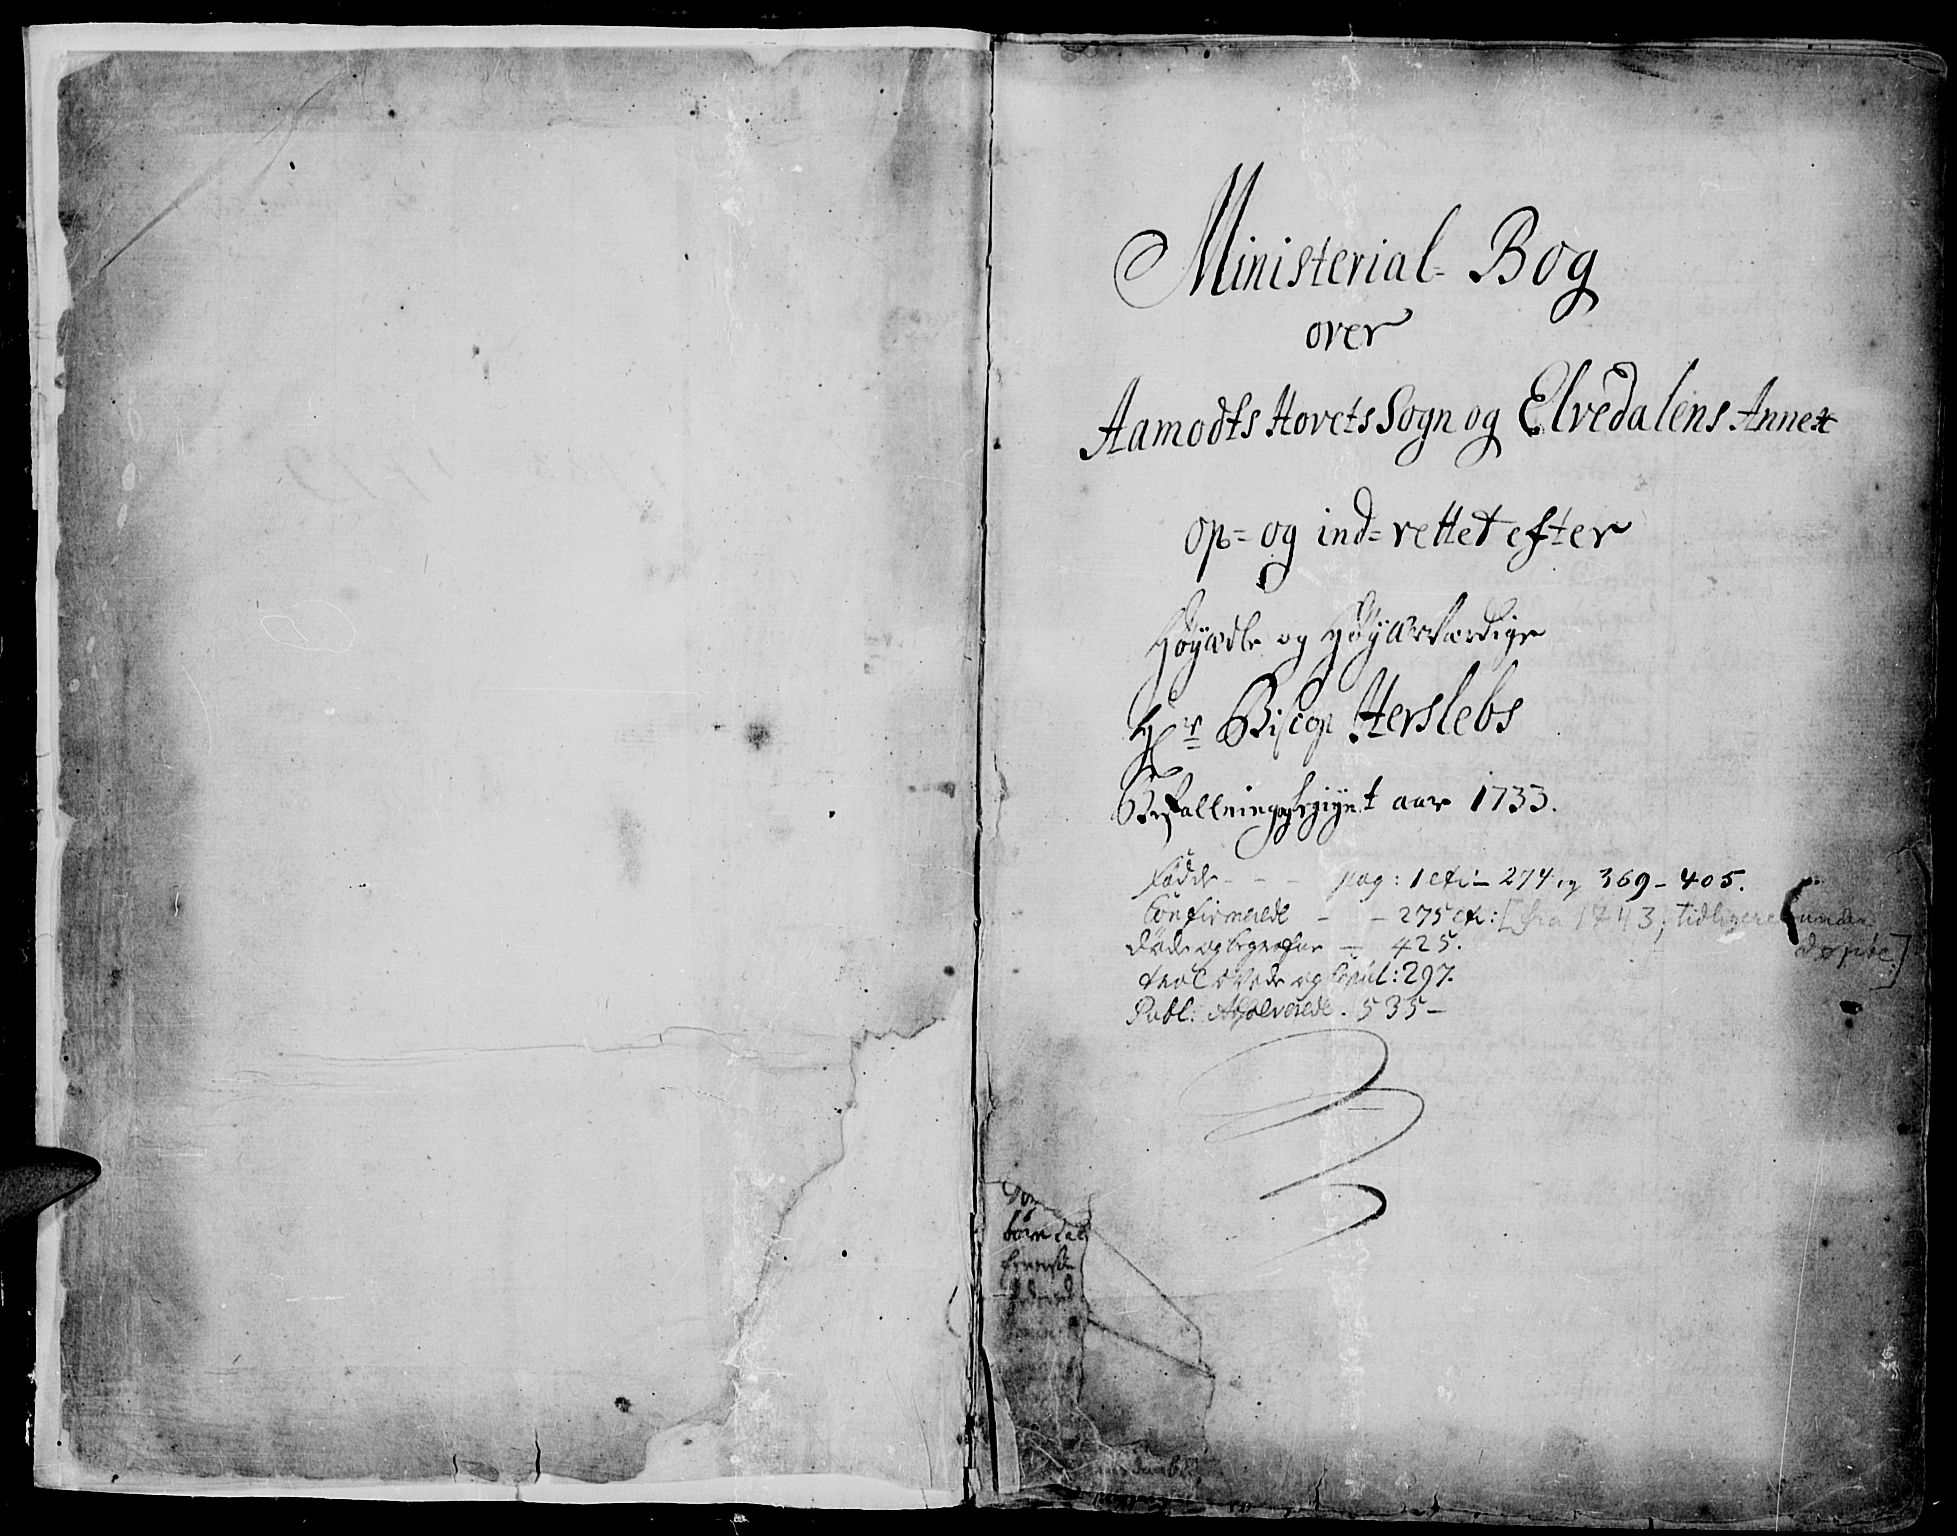 Ministerial- Bog
over
Aamodts Hovets Sogn og Elvedalens Annex
op= og ind= rettet efter
Høyædle og Høyærværdige
Hr Biscop Herslebs
Befalning begynt aar 1733.
Fødde - - - pag: 1 etc:- 274 og 369 - 405.
Confirmerede - - 275 etc: [fra 1743; tidligere under
døpte.]
Døde og begrafne - 425.
Trolovede og Copul: 297.
Publ: Absolverede. 535-